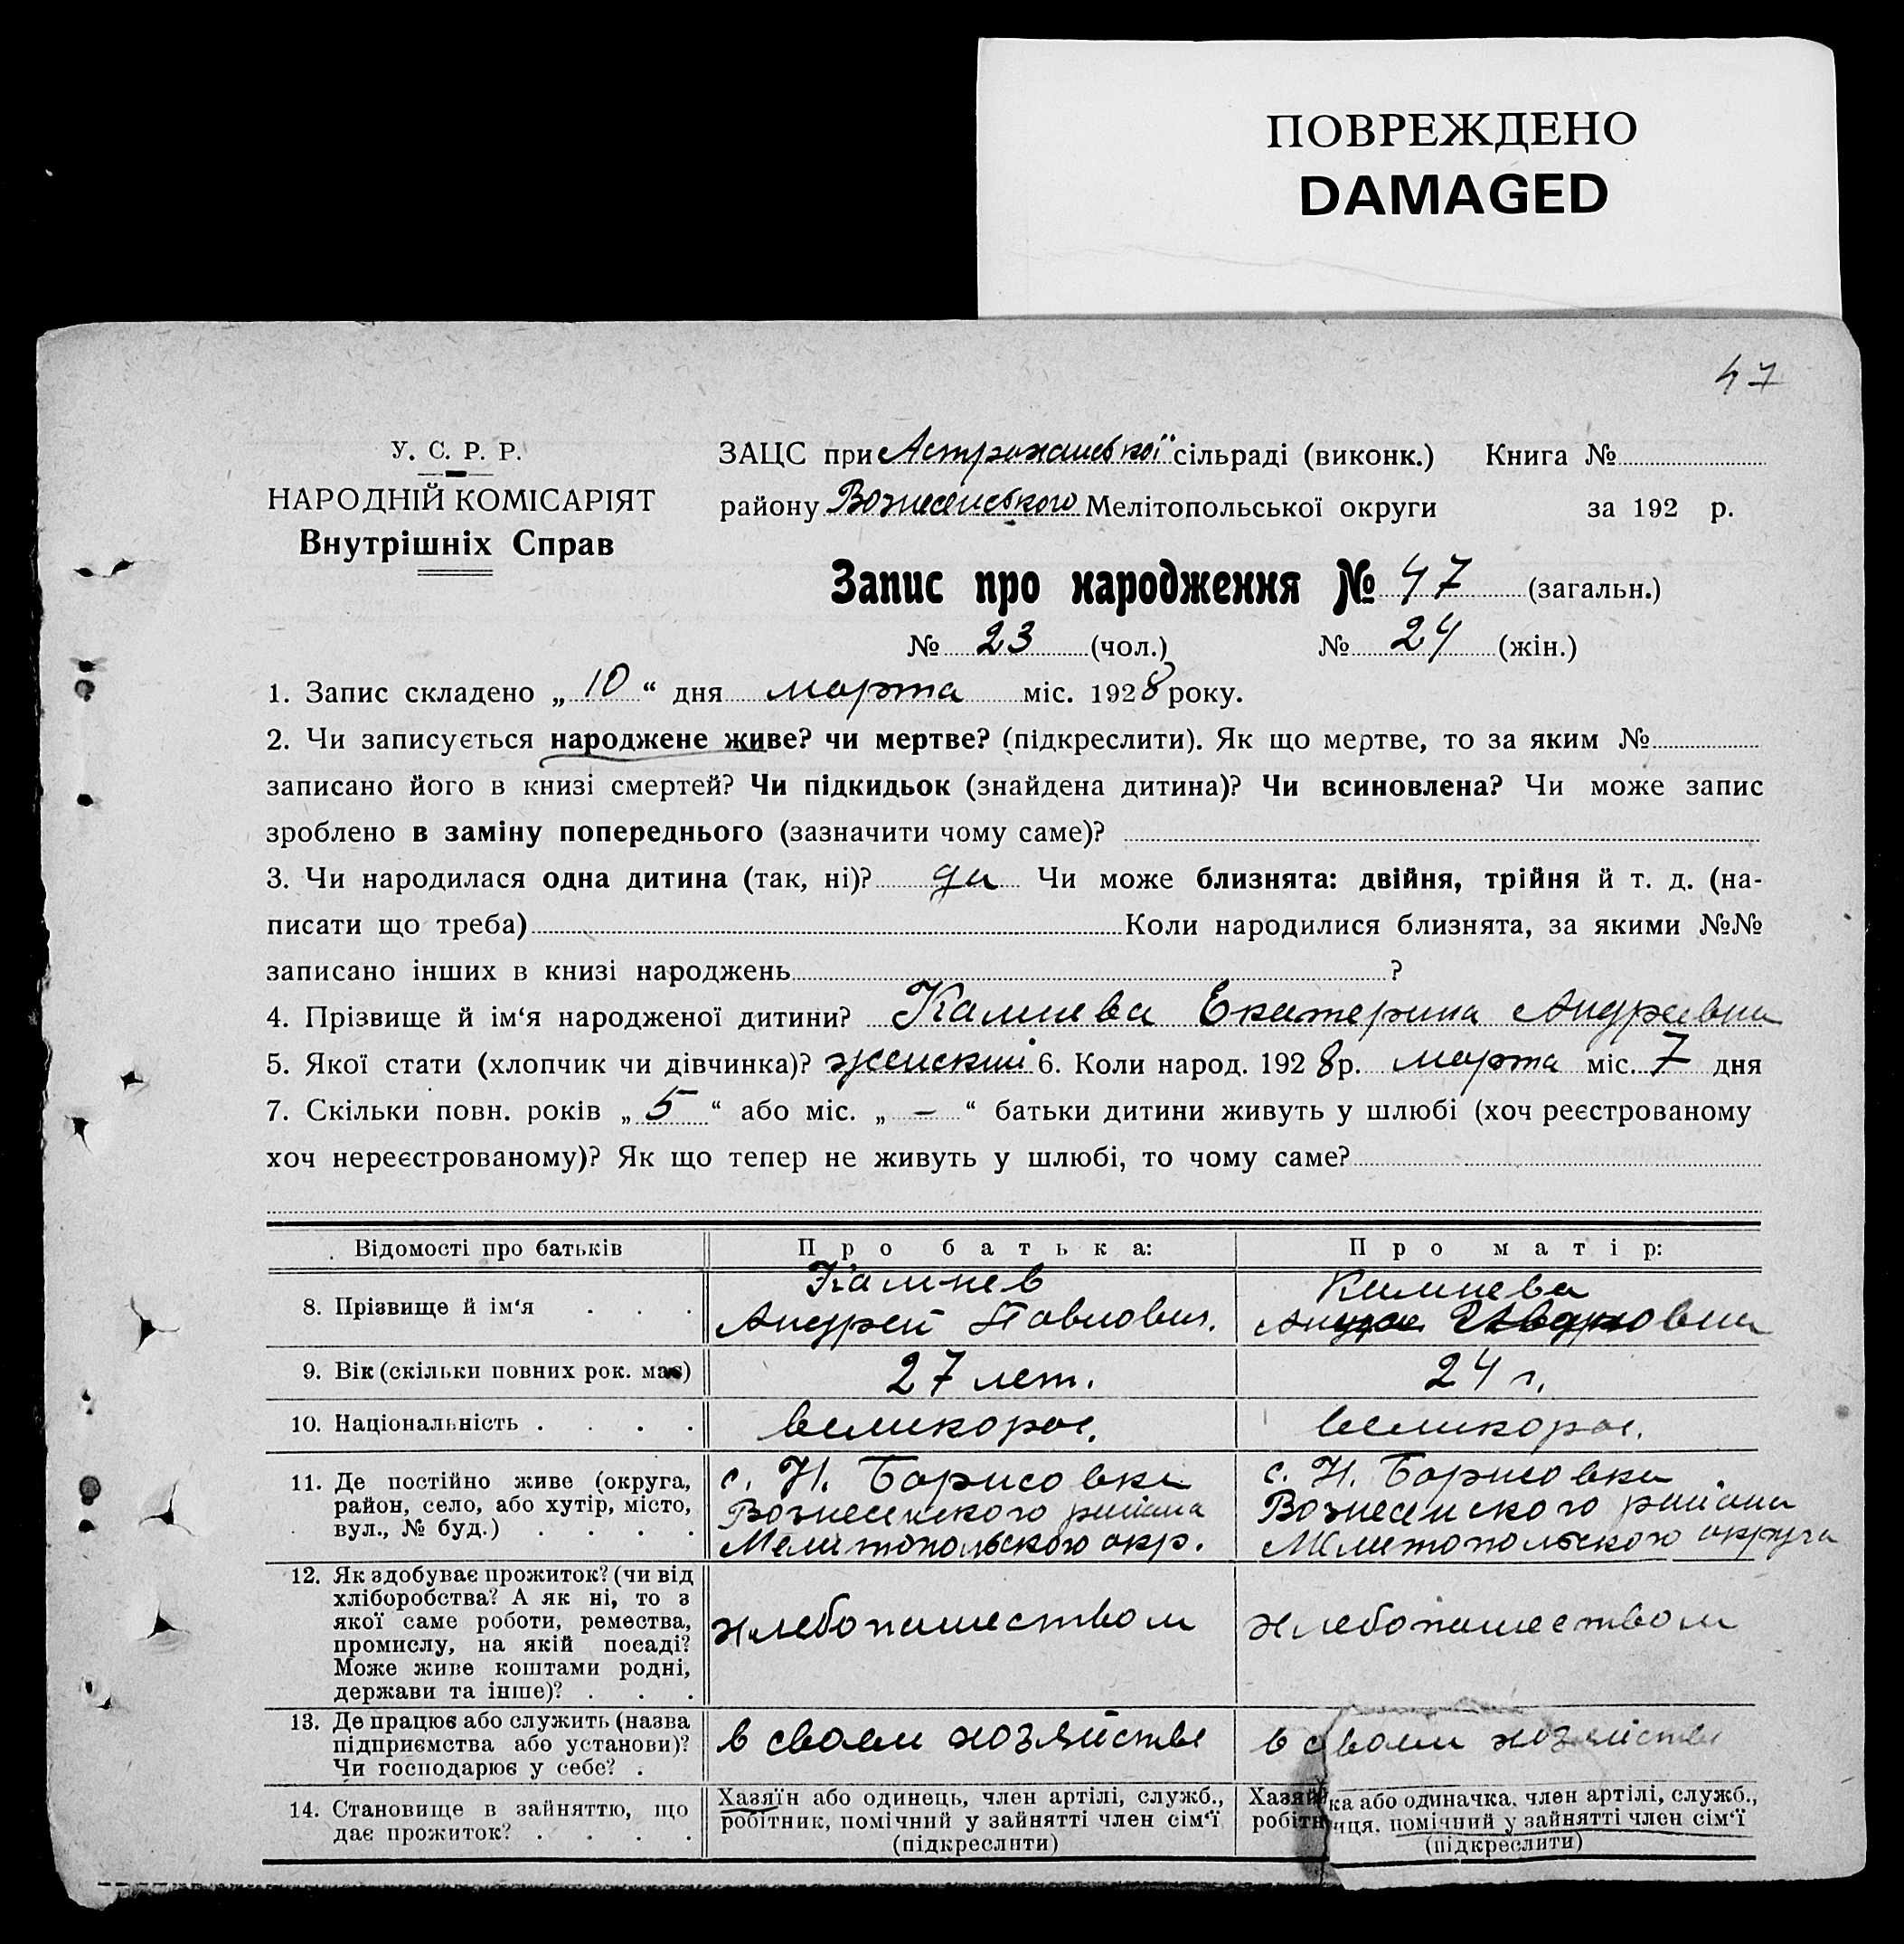 ПОВРЕЖДЕНО
DAMAGED
47
У. С. Р. Р.
НАРОДНІЙ КОМІСАРІЯТ
Внутрішніх Справ
ЗАЦС при Астраханської сільраді (виконк.) Книга №
району Вознесенського Мелітопольської округи за 192 р.
Запис про народження № 47 (загальн.)
№ 23 (чол.) № 24 (жін.)
1. Запис складено „ 10 “ дня марта міс. 1928 року.
2. Чи записується народжене живе? чи мертве? (підкреслити). Як що мертве, то за яким №
записано його в книзі смертей? Чи підкидьок (знайдена дитина)? Чи всиновлена? Чи може запис
зроблено в заміну попереднього (зазначити чому саме)?
3. Чи народилася одна дитина (так, ні)? да Чи може близнята: двійня, трійня й т. д. (на-
писати що треба) Коли народилися близнята, за якими №№
записано інших в книзі народжень ?
4. Прізвище й ім‘я народженої дитини? Камнева Екатерина Андреевна
5. Якої стати (хлопчик чи дівчинка)? женский 6. Коли народ. 1928 р. марта міс. 7 дня
7. Скільки повн. років „ 5 “ або міс. „ — “ батьки дитини живуть у шлюбі (хоч реєстрованому
хоч нереєстрованому)? Як що тепер не живуть у шлюбі, то чому саме?
Відомості про батьків
Про батька:
Про матір:
8. Прізвище й ім‘я . . .
Камнев
Андрей Павлович.
Камнева
9. Вік (скільки повних рок. має)
27 лет.
24 г.
10. Національність . . . .
великорос.
великорос.
11. Де постійно живе (округа,
район, село, або хутір, місто,
вул., № буд.) . . . .
с. Н. Борисовка
Вознесенского района
Мелитопольского окр.
с. Н. Борисовка
Вознесенского района
Мелитопольского округа
12. Як здобуває прожиток? (чи від
хліборобства? А як ні, то з
якої саме роботи, ремества,
промислу, на якій посаді?
Може живе коштами родні,
держави та інше)? . . .
хлебопашеством
хлебопашеством
13. Де працює або служить (назва
підприємства або установи)?
Чи господарює у себе? .
в своем хозяйстве
в своем хозяйстве
14. Становище в зайняттю, що
дає прожиток? . . . .
Хазяїн або одинець, член артілі, служб.,
робітник, помічний у зайнятті член сім‘ї
(підкреслити)
Хазяйка або одиначка, член артілі, служб.,
робітниця, помічний у зайнятті член сім‘ї
(підкреслити)